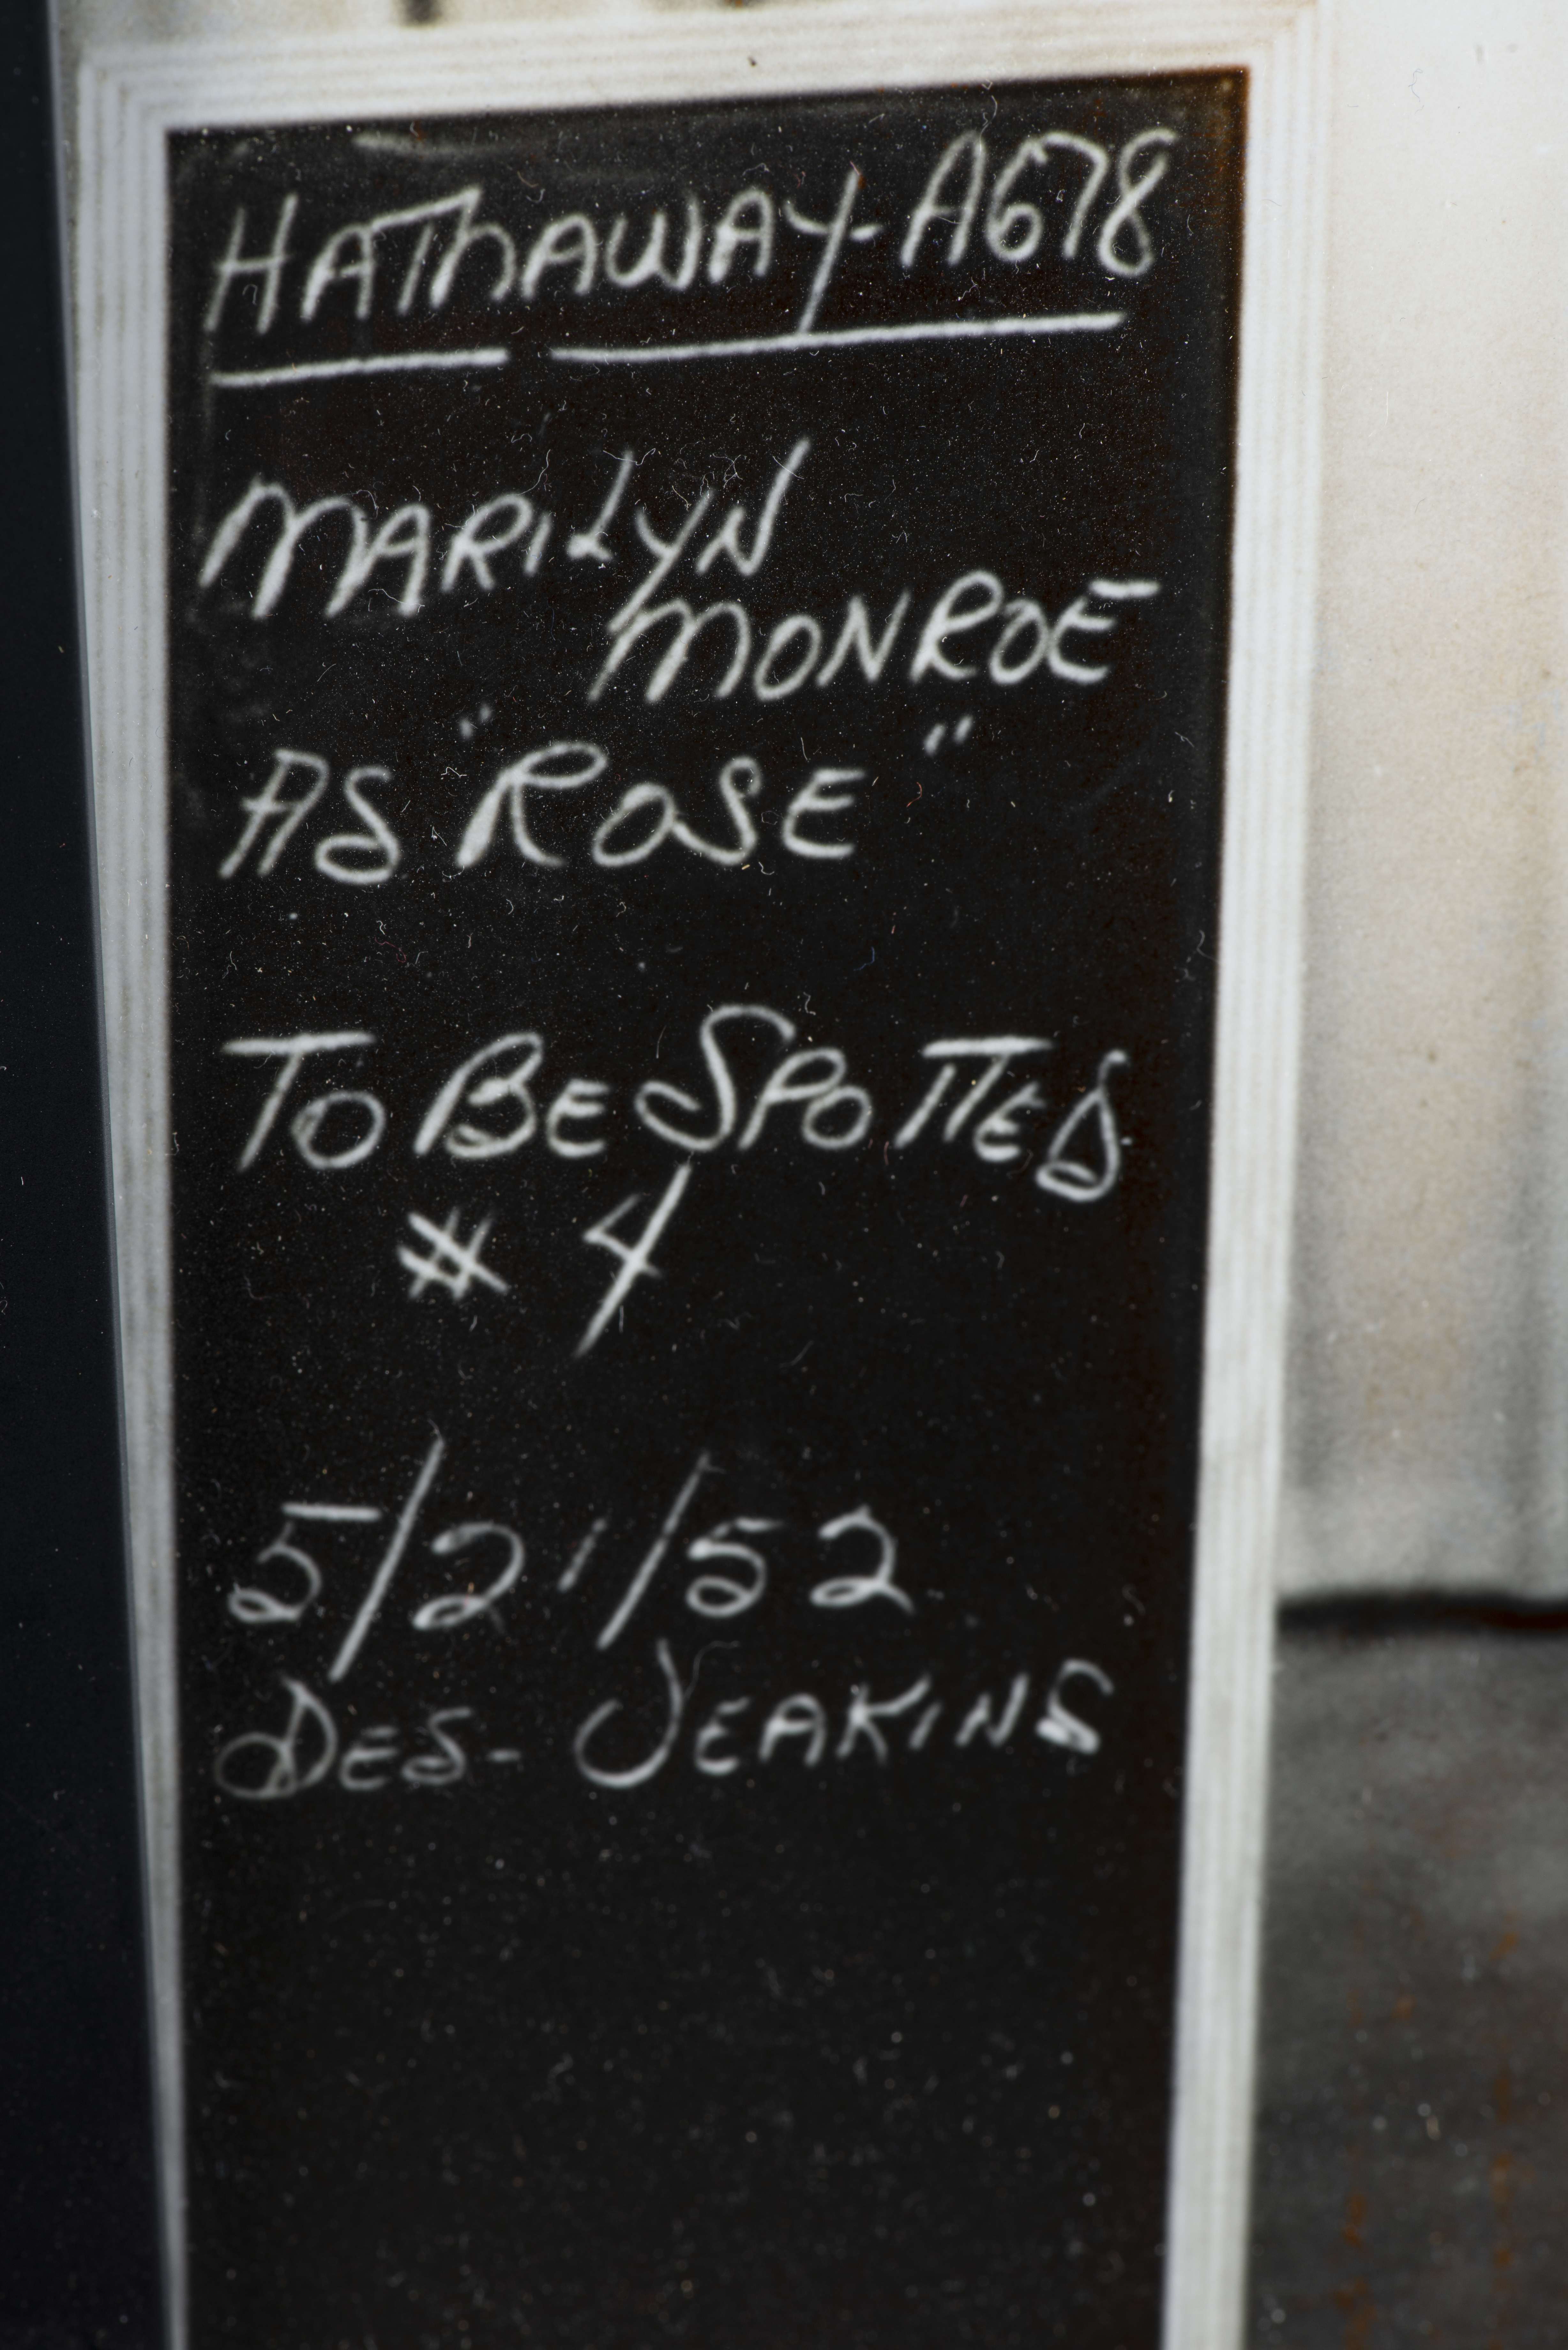 HATHAWAY-A678
MARILYN
MONROE
AS "ROSE"
TO BE SPOTTED
# 4
5/21/52
DES- JEAKINS